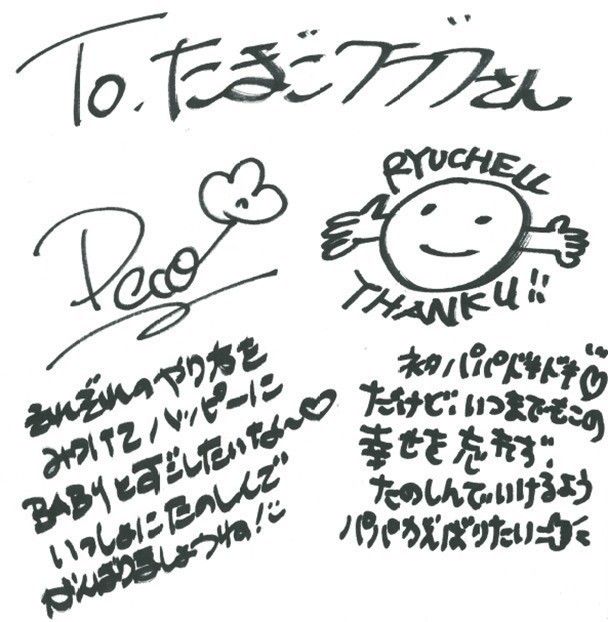 To.たまごクラブさん
Peco
RYUCHELL
THANKU!!
それぞれのやり方を
みつけてハッピーに
BABYとすごしたいな〜♡
いっしょにたのしんで
がんばりましょうね!
パパドキドキ♡
だけど、いつまでもこの
幸せを忘れず、
たのしんでいけるよう
パパがんばりたい